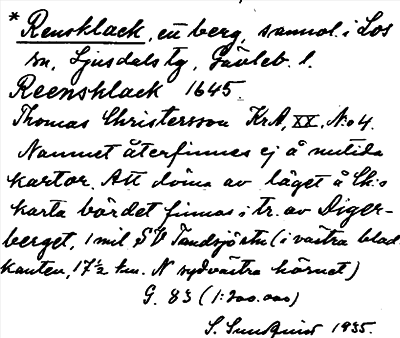 * Rensklack, en berg, sannol. i Los
sn, Ljusdals tg, Gävleb. l.
Reensklack 1645.
Thomas Christersson KrA, XX, No 4.
Namnet återfinnes ej å nutida
kartor. Att döma av läget å Ch:s
karta bör det finnas i tr. av Diger-
berget, 1 mil SV Tandsjön (i västra blad-
kanten, 17½ km. N sydvästra hörnet)
G. 83 (1:200.000)
S. Sundquist 1935.